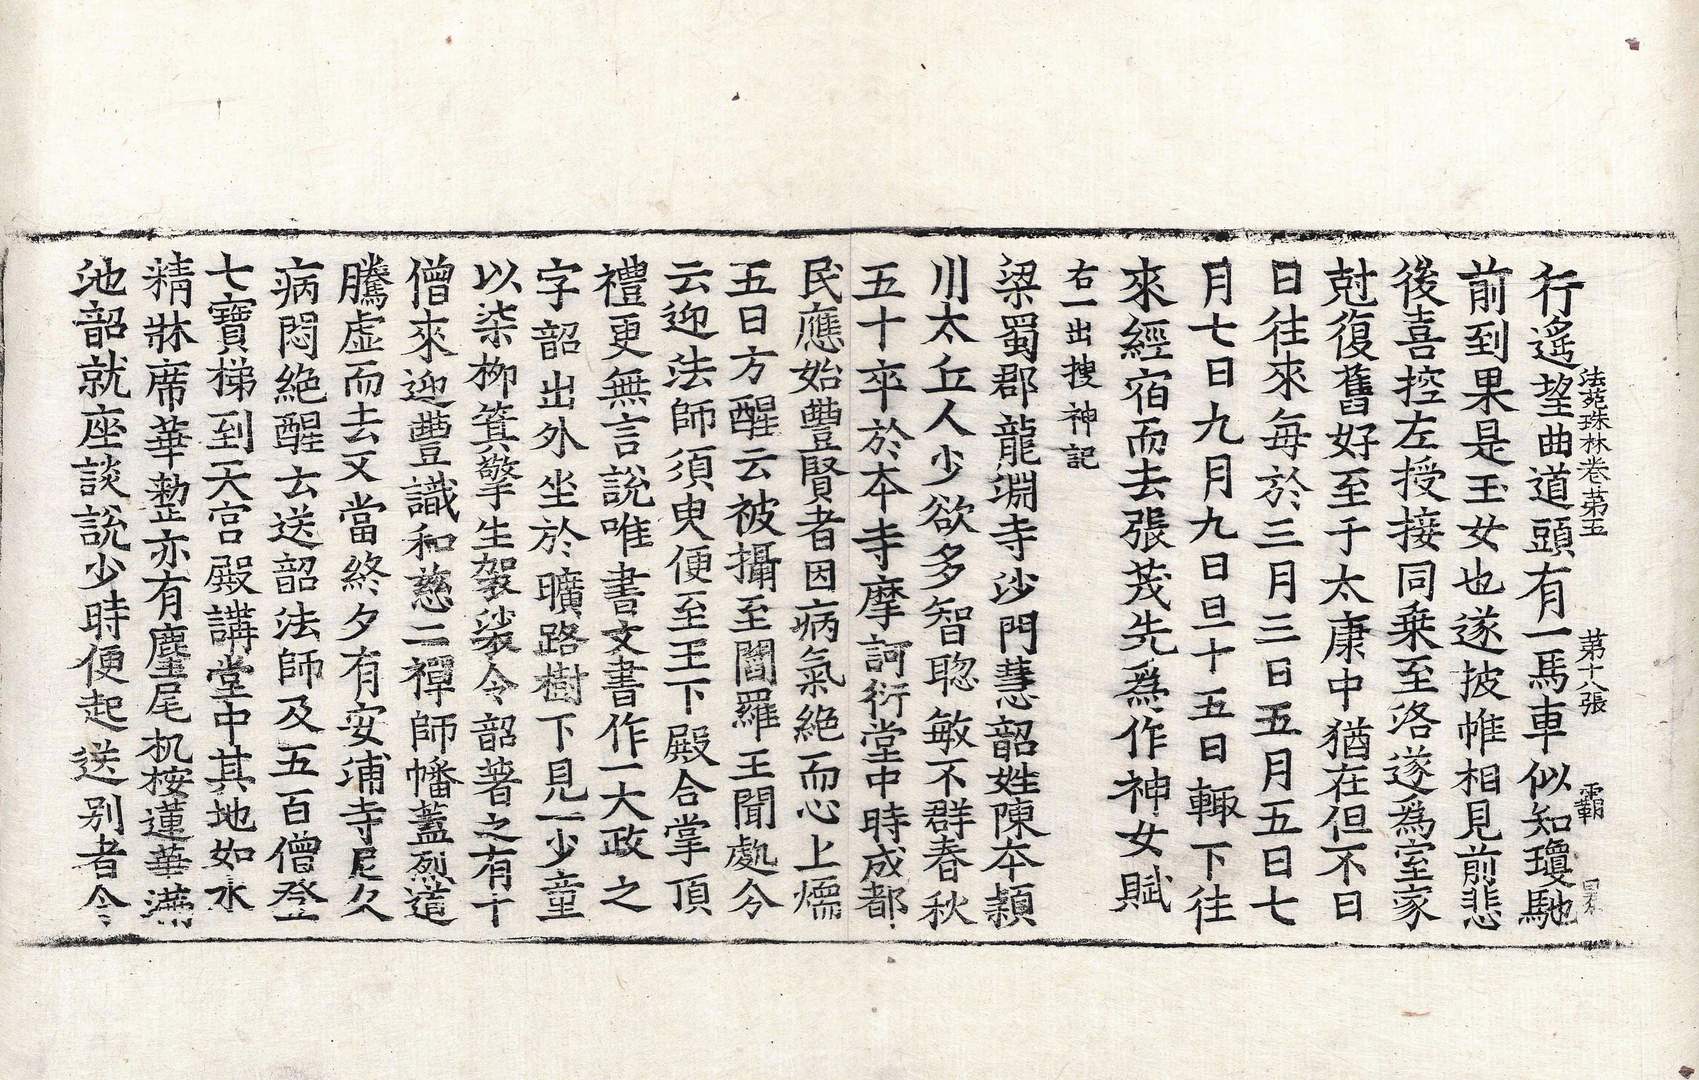 法苑珠林卷第五 第十八張 霸
行遙望曲道頭有一馬車似知瓊馳
前到果是玉女也遂披帷相見前悲
後喜控左授接同乗至洛遂爲室家
尅復舊好至于太康中猶在但不日
日往來每於三月三日五月五日七
月七日九月九日旦十五日輙下往
來經宿而去張茂先爲作神女賦
右一出搜神記
梁蜀郡龍淵寺沙門慧韶姓陳本頴
川太丘人少欲多智聦敏不群春秋
五十卒於本寺摩訶衍堂中時成都
民應始豐賢者因病氣絶而心上煗
五日方醒云被攝至閻羅王聞處分
云迎法師須臾便至王下殿合掌頂
禮更無言說唯書文書作一大政之
字韶出外坐於曠路樹下見一少童
以柒柳筽擎生袈裟令韶著之有十
僧來迎豐識和慈二禪師幡蓋烈道
騰虚而去又當終夕有安浦寺尼久
病悶絶醒云送韶法師及五百僧登
七寶梯到天宮殿講堂中其地如水
精牀席華整亦有麈尾机桉蓮華滿
池韶就座談說少時便起送别者令